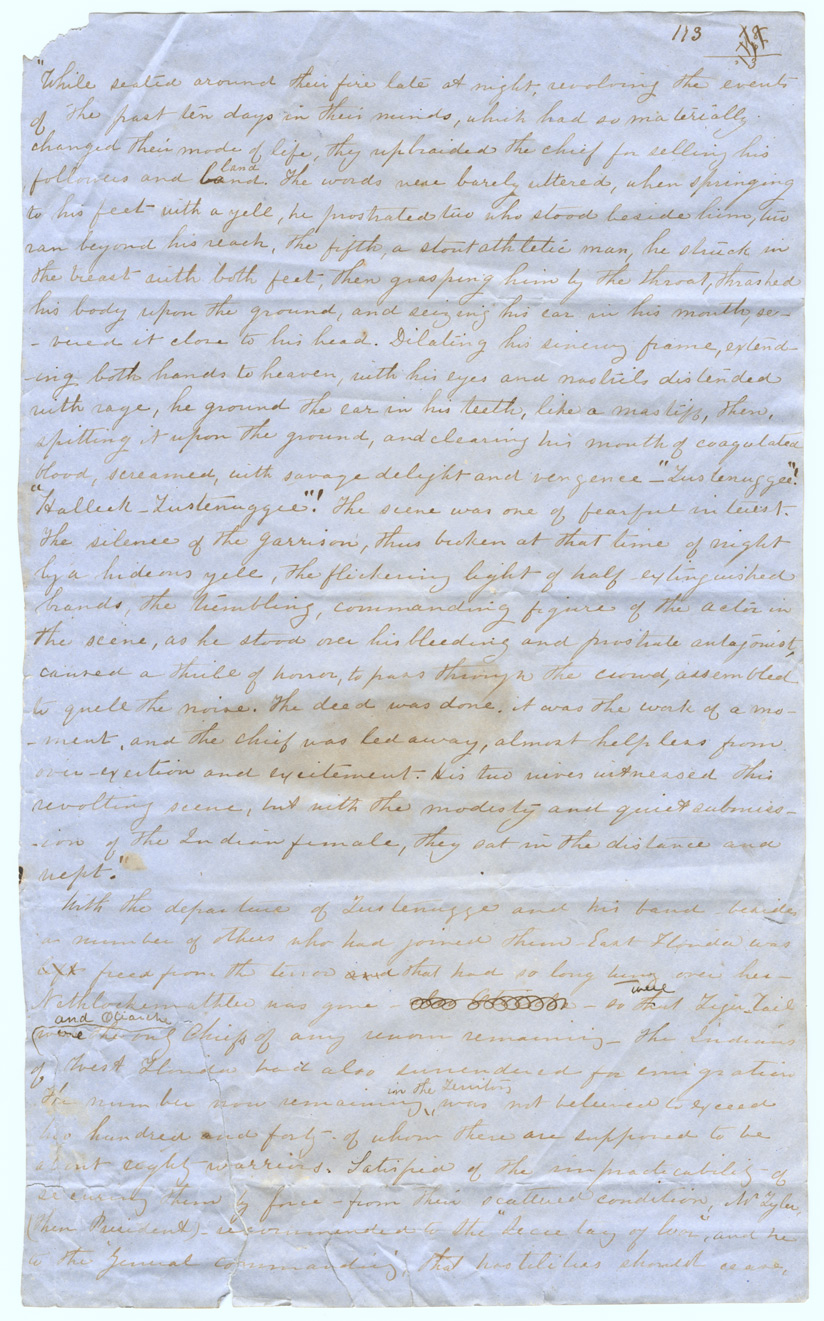 113
"While seated around their fire late at night, revolving the events
of the past ten days in their minds, which had so materially
changed their mode of life, they upbraided the chief for selling his
land
followers and band. The words were barely uttered, when springing
to his feet with a yell, he prostrated two who stood beside him, two
ran beyond his reach, the fifth, a stout athletic man, he struck in
the breast with both feet, then grasping him by the throat, thrashed
his body upon the ground, and seizing his ear in his mouth, se-
-vered it close to his head. Dilating his sinewy frame, extend-
-ing both hands to heaven, with his eyes and nostrils distended
with rage, he ground the ear in his teeth, like a mastiff, then,
spitting it upon the ground, and clearing his mouth of coagulated
blood, screamed, with savage delight and vengence - "Tustenuggee"!
"Halleck-Tustenuggee"! The scene was one of fearful interest.
The silence of the garrison, thus broken at that time of night
by a hideous yell, the flickering light of half-extinguished
brands, the trembling, commanding figure of the actor in
the scene, as he stood over his bleeding and prostrate antagonist,
caused a thrill of horror, to pass through the crowd, assembled
to quell the noise. The deed was done, it was the work of a mo-
-ment, and the chief was led away, almost helpless from
over-exertion and excitement. His two wives witnessed this
revolting scene, but with the modesty and quiet submiss-
-ion of the Indian female, they sat in the distance and
wept."
With the departure of Tustenugge and his band - besides
a number of others who had joined them - East Florida was
freed from the terror that had so long hung over her -
were
Nethlockemathlar was gone - so that Tiger Tail
and Otiarche
were the only Chiefs of any renown remaining - The Indians
of West Florida had also surrendered for emigration
in the Territory
The number now remaining, was not believed to exceed
two hundred and forty - of whom there are supposed to be
about eighty warriors. Satisfied of the impracticability of
securing them by force - from their scattered condition, Mr Tyler,
(then President) - recommended to the "Secretary of War", and he
to the General commanding, that hostilities should cease,